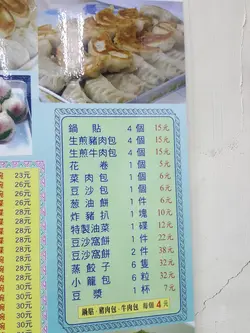 鍋貼 4個 15元
生煎豬肉包 4個 15元
生煎牛肉包 4個 15元
花卷 1個 5元
菜肉包 1個 6元
豆沙包 1個 6元
葱油餅 1件 7元
炸豬扒 1塊 10元
特製油菜 1碟 12元
豆沙窩餅 1件 22元
豆沙窩餅 2件 38元
蒸餃子 6隻 32元
小籠包 6粒 32元
豆漿 1杯 7元
鍋貼·豬肉包·牛肉包 每個4元
碗 23元
碗 26元
碟 26元
碟 26元
碟 28元
28元
28元
28元
28元
28元
碗 28元
碗 30元
碗 28元
碗 30元